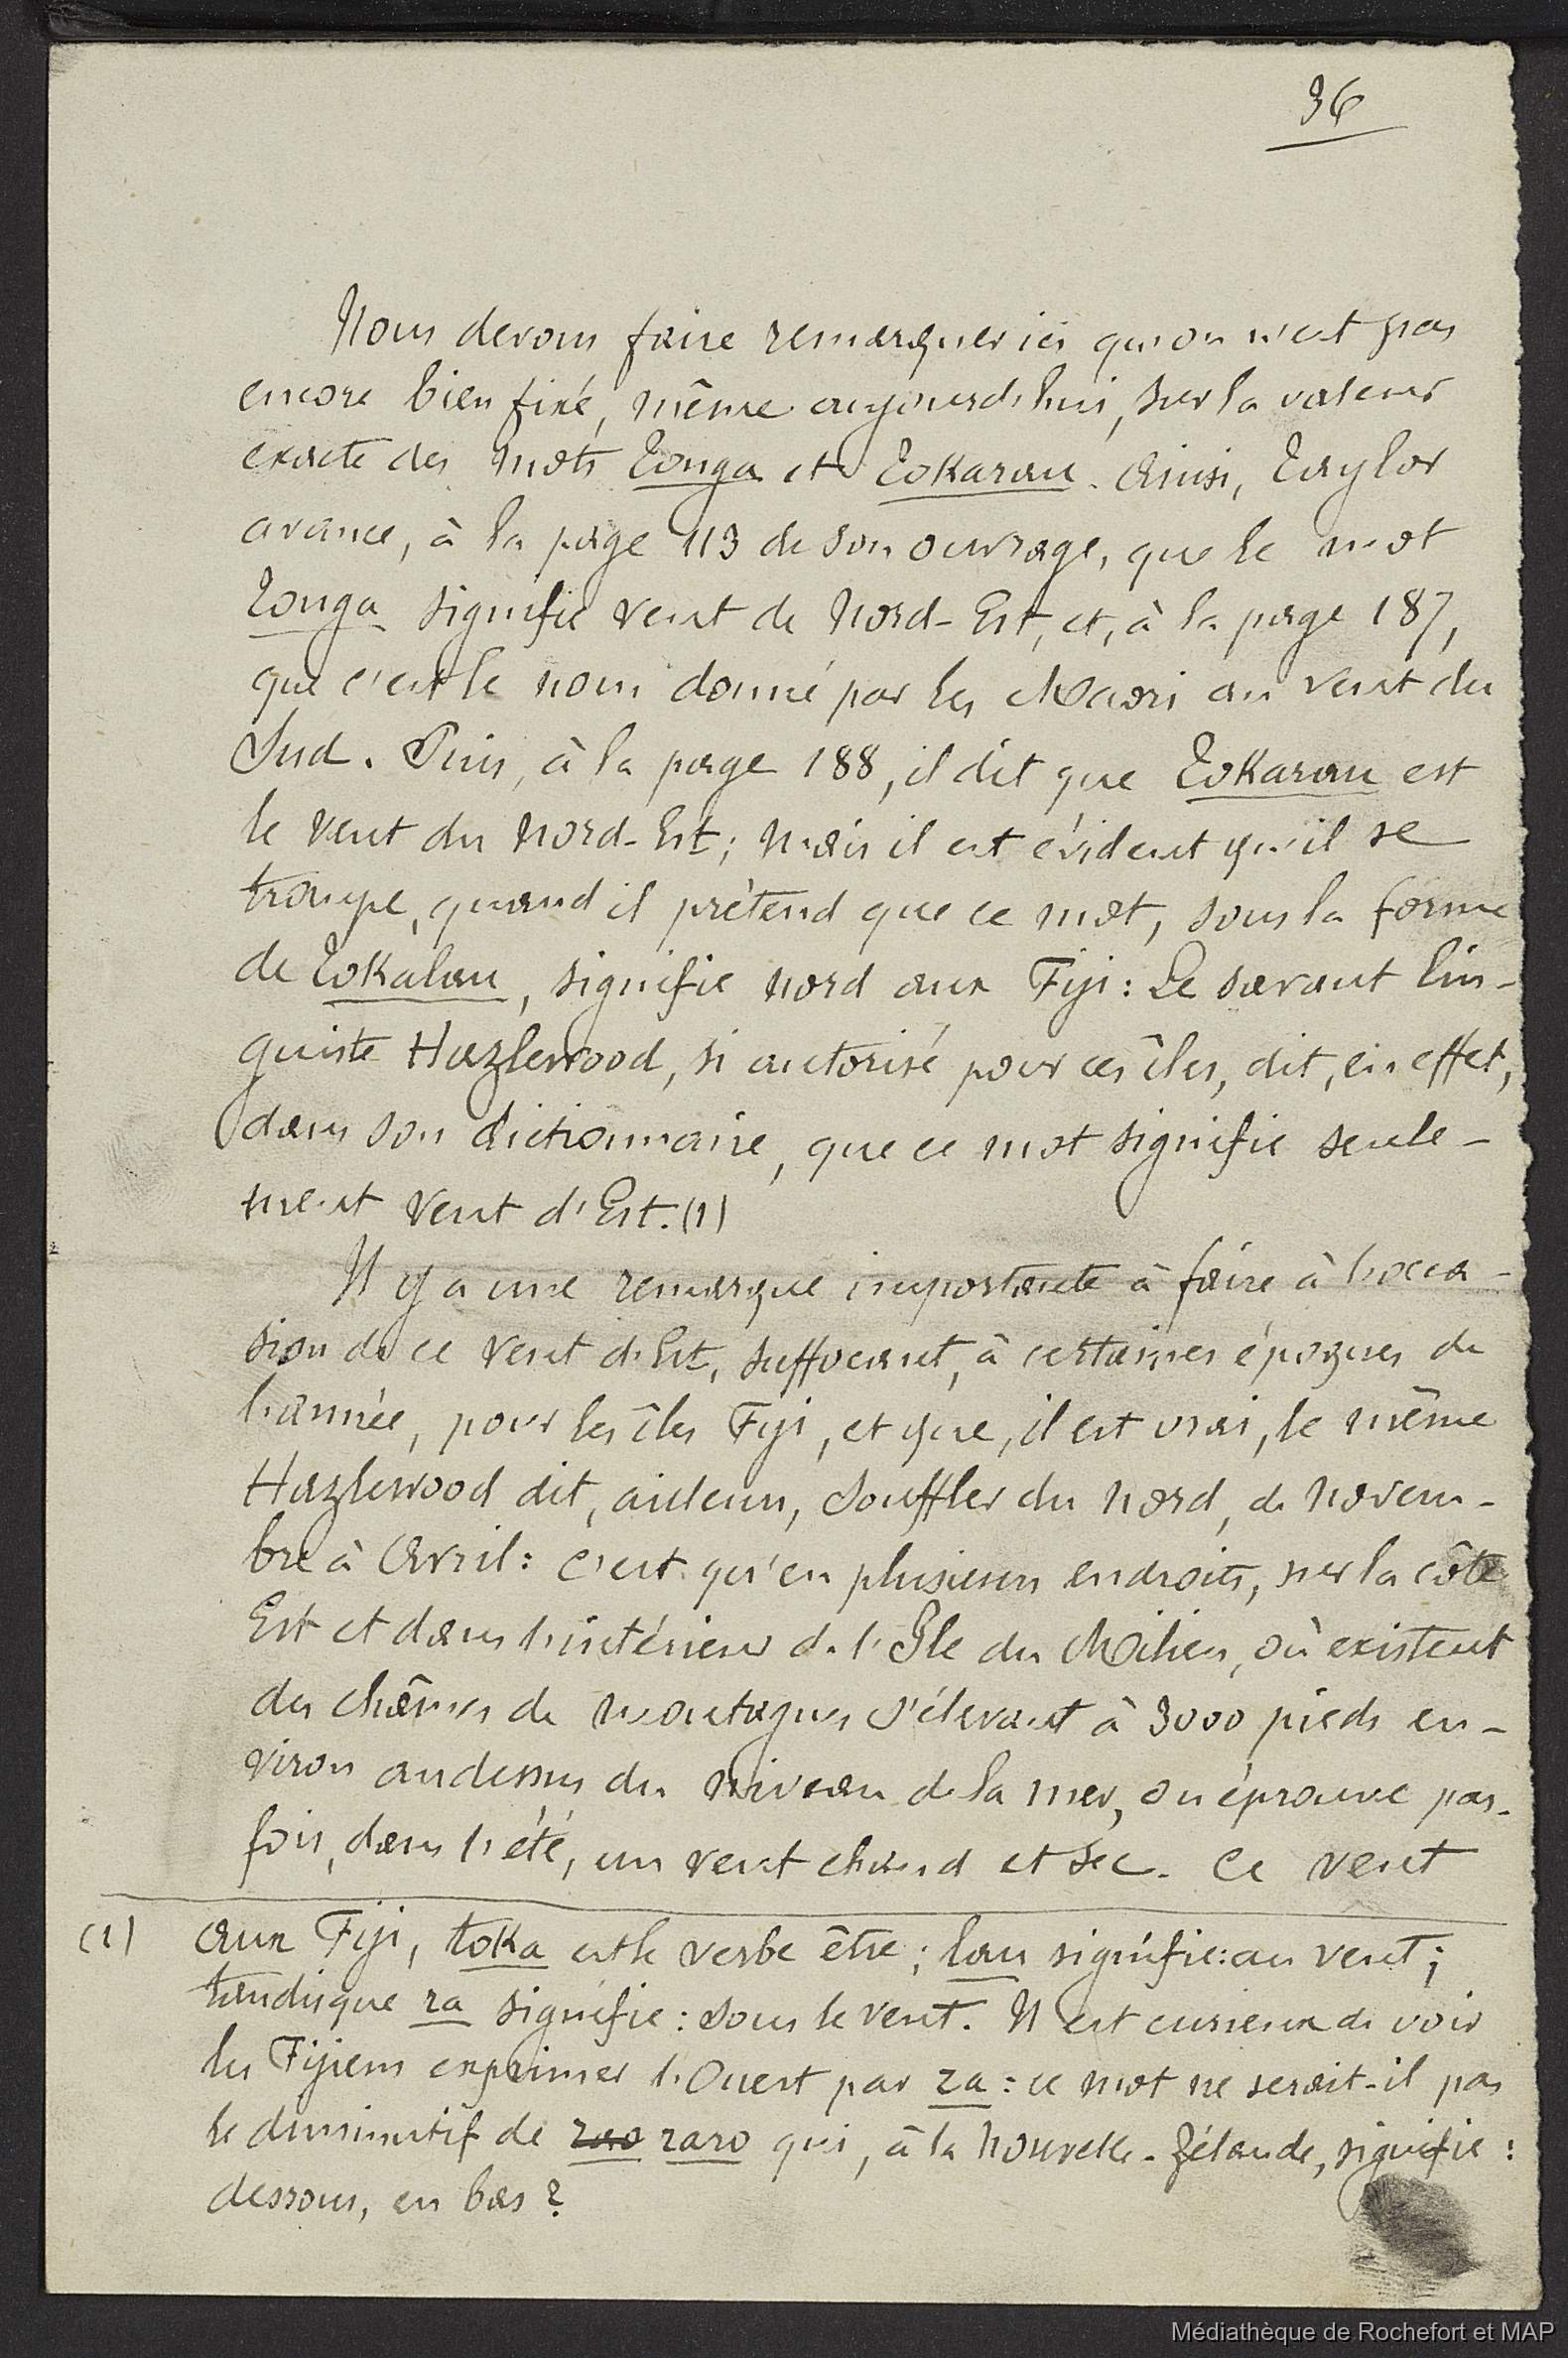 36
Nous devons faire remarquer ici qu'on n'est pas
encore bien fixé, même aujourd'hui, sur la valeur
exacte des mots Tonga et Tokarau. Ainsi, Taylor
avance, à la page 113 de son ouvrage, que le mot
Tonga signifie vent de Nord-Est, et, à la page 187,
que c'est le nom donné par les Maori au vent du
Sud. Puis, à la page 188, il dit que Tokarau est
le vent du Nord-Est; mais il est évident qu'il se
trompe, quand il prétend que ce mot, sous la forme
de Tokalau, signifie nord aux Fiji: Le savant lin-
guiste Hazlewood, si autorisé pour ces îles, dit, en effet,
dans son dictionnaire, que ce mot signifie seule-
ment vent d'Est. (1)
Il y a une remarque importante à faire à l'occa-
sion de ce vent d'Est, suffocant, à certaines époques de
l'année, pour les îles Fiji, et que, il est vrai, le même
Hazlewood dit, ailleurs, souffler du nord, de novem-
bre à Avril: c'est qu'en plusieurs endroits, sur la côte
Est et dans l'intérieur de l'Ile du Milieu, où existent
des chaînes de montagnes s'élevant à 3000 pieds en-
viron audessus du niveau de la mer, on éprouve par-
fois, dans l'été, un vent chaud et sec. Ce vent
(1) Aux Fiji, toka est le verbe être; lau signifie: au vent;
tandisque ra signifie: sous le vent. Il est curieux de voir
les Fijiens exprimer l'Ouest par ra: ce mot ne serait-il pas
le diminutif de rao raro qui, à la Nouvelle-Zélande, signifie:
dessous, en bas?
Médiathèque de Rochefort et MAP